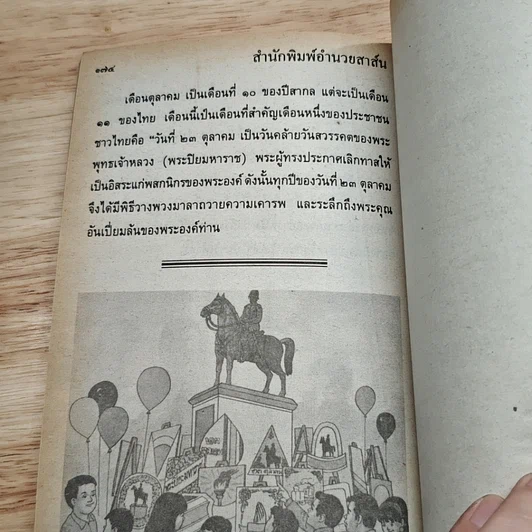 ๑๗๔
สำนักพิมพ์อำนวยสาส์น
เดือนตุลาคม เป็นเดือนที่ ๑๐ ของปีสากล แต่จะเป็นเดือน
๑๑ ของไทย เดือนนี้เป็นเดือนที่สำคัญเดือนหนึ่งของประชาชน
ชาวไทยคือ "วันที่ ๒๓ ตุลาคม เป็นวันคล้ายวันสวรรคตของพระ
พุทธเจ้าหลวง (พระปิยมหาราช) พระผู้ทรงประกาศเลิกทาสให้
เป็นอิสระแก่พสกนิกรของพระองค์ ดังนั้นทุกปีของวันที่ ๒๓ ตุลาคม
จึงได้มีพิธีวางพวงมาลาถวายความเคารพ และระลึกถึงพระคุณ
อันเปี่ยมล้นของพระองค์ท่าน